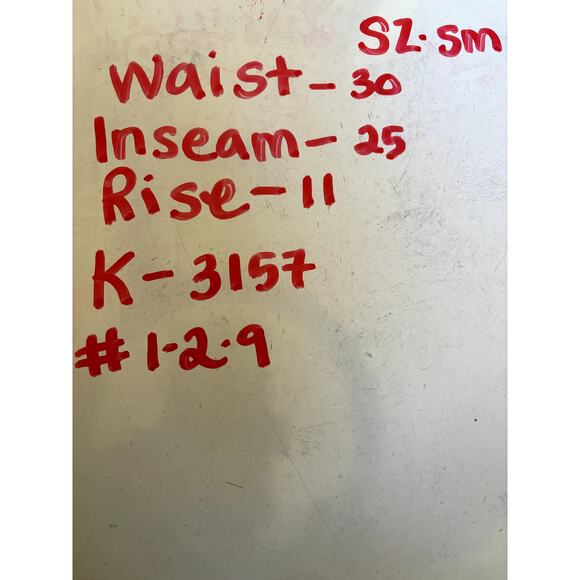 SZ. Sm
Waist - 30
Inseam - 25
Rise - 11
K - 3157
# 1-2.9